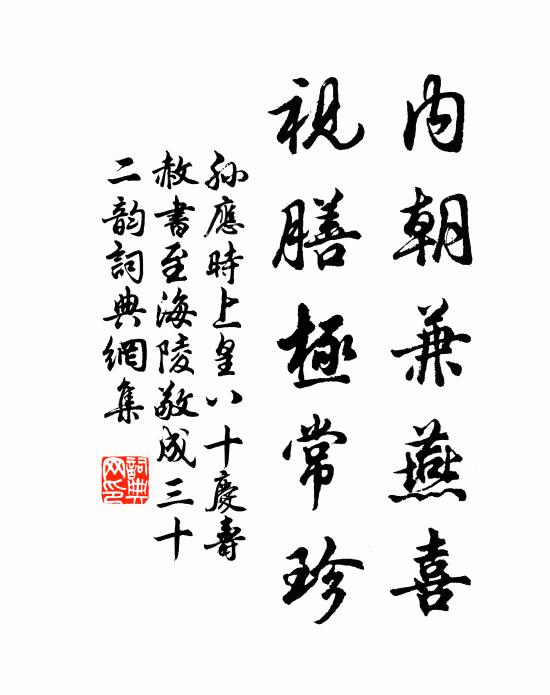 內朝兼燕喜
視膳極常珍
孫應時上皇八十慶壽
赦書至海陵敬成三十
二韵詞典網集
詞典網印